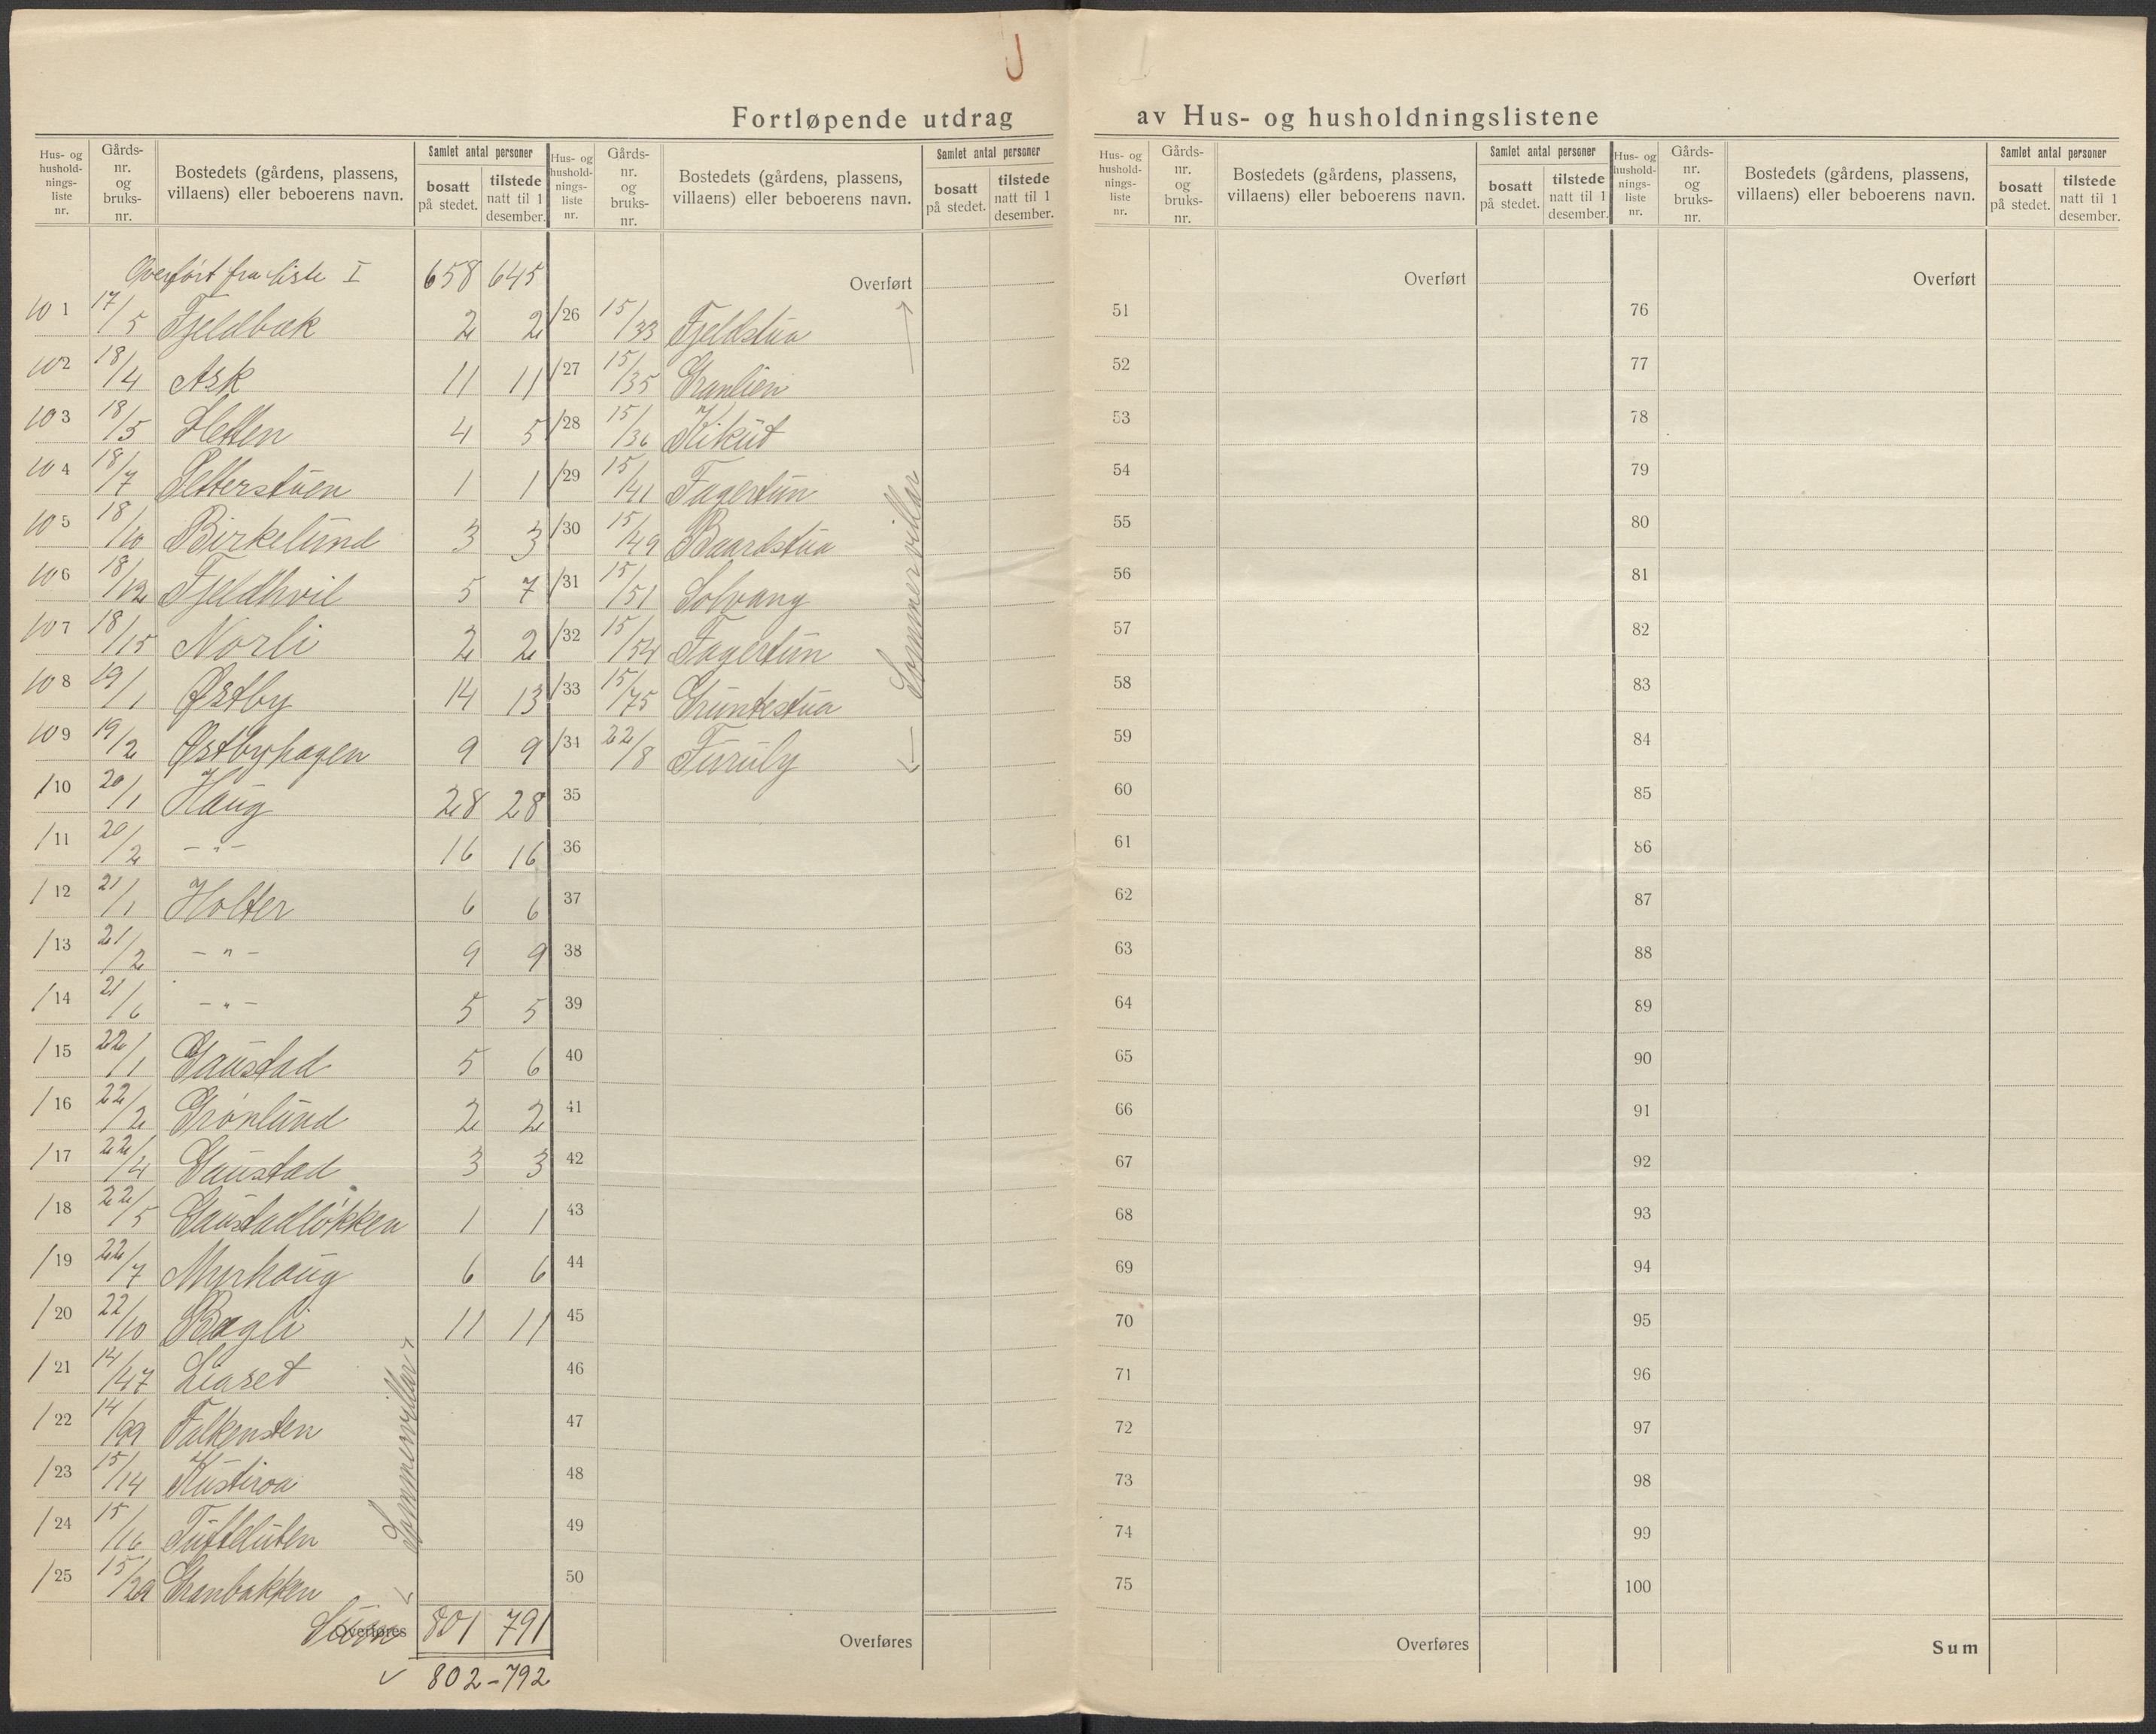 Fortløpende utdrag av Hus- og husholdningslistene
Hus- og husholdnings-liste nr. | Gårds-nr. og bruks-nr. | Bostedets (gårdens, plassens, villaens) eller beboerens navn. | Samlet antal personer | bosatt på stedet. | tilstede natt til 1 desember.
Overført fra liste I 658 645
101 17/5 Fjeldbak 2 2
102 18/4 Ask 11 11
103 18/5 Sletten 4 5
104 18/7 Petterstuen 1 1
105 18/10 Birkelund 3 3
106 18/12 Fjeldhvil 5 7
107 18/15 Norli 2 2
108 19/1 Østby 14 13
109 19/2 Østbyhagen 9 9
/10 20/1 Haug 28 28
/11 20/2 -"- 16 16
/12 21/1 Holter 6 6
/13 21/2 -"- 9 9
/14 21/6 -"- 5 5
/15 22/1 Gaustad 5 6
/16 22/2 Grønlund 2 2
/17 22/4 Gaustad 3 3
/18 22/5 Gaustadløkken 1 1
/19 22/7 Myrhaug 6 6
/20 22/10 Bagli 11 11
/21 14/47 Liaset
/22 14/99 Falkensten
/23 15/14 Kustiroa
/24 15/16
/25 15/29 Granbakken
Sommervillar
Overføres Sum 801 791
802-792
Hus- og husholdnings-liste nr. | Gårds-nr. og bruks-nr. | Bostedets (gårdens, plassens, villaens) eller beboerens navn. | Samlet antal personer | bosatt på stedet. | tilstede natt til 1 desember.
Overført
/26 15/33 Fjeldstua
/27 15/35 Granlien
/28 15/36 Kikut
/29 15/41 Fagertun
/30 15/49 Baardstua
/31 15/51 Solvang
/32 15/54 Fagertun
/33 15/75 Gruntestua
/34 22/8 Furuly
Sommervillar
35
36
37
38
39
40
41
42
43
44
45
46
47
48
49
50
Overføres
Hus- og husholdnings-liste nr. | Gårds-nr. og bruks-nr. | Bostedets (gårdens, plassens, villaens) eller beboerens navn. | Samlet antal personer | bosatt på stedet. | tilstede natt til 1 desember.
Overført
51
52
53
54
55
56
57
58
59
60
61
62
63
64
65
66
67
68
69
70
71
72
73
74
75
Overføres
Hus- og husholdnings-liste nr. | Gårds-nr. og bruks-nr. | Bostedets (gårdens, plassens, villaens) eller beboerens navn. | Samlet antal personer | bosatt på stedet. | tilstede natt til 1 desember.
Overført
76
77
78
79
80
81
82
83
84
85
86
87
88
89
90
91
92
93
94
95
96
97
98
99
100
Sum